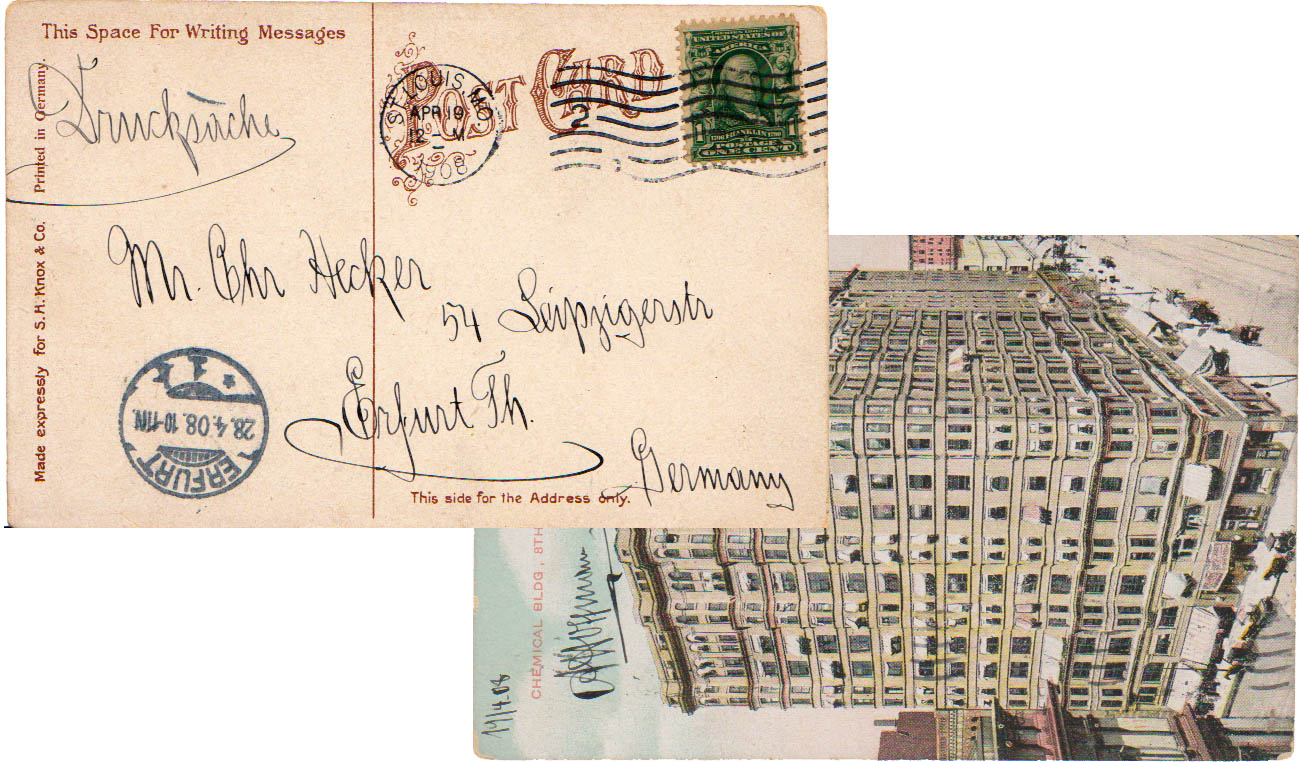 This Space For Writing Messages
Printed in Germany.
Made expressly for S. H. Knox & Co.
Drucksache
POST CARD
ST. LOUIS, MO.
APR 19
12 - M
1908
2
SERIES 1902
UNITED STATES OF
AMERICA
1706 FRANKLIN 1790
1 POSTAGE 1
ONE CENT
Mr. Chr Hecker
54 Leipzigerstr
Erfurt Th.
Germany
ERFURT
28.4.08.10-11N.
1
This side for the Address only.
CHEMICAL BLDG., 8TH
19/4.08